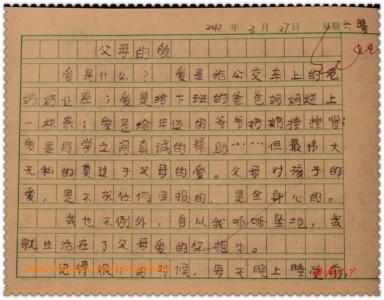 年 3 月 27 日 星期六 晴
父母的爱
爱是什么？爱是给公交车上的老
奶奶让座；爱是给下班的爸爸妈妈送上
一杯茶；爱是给年迈的爷爷奶奶捶捶背；
爱是同学之间真诚的帮助……但最伟大
无私的莫过于父母的爱。父母对孩子的
爱，是不求任何回报的，是全身心的。
我也不例外，自从我呱呱坠地，我
就生活在了父母爱的怀抱中。
记得很 的时候，每天晚上睡觉前